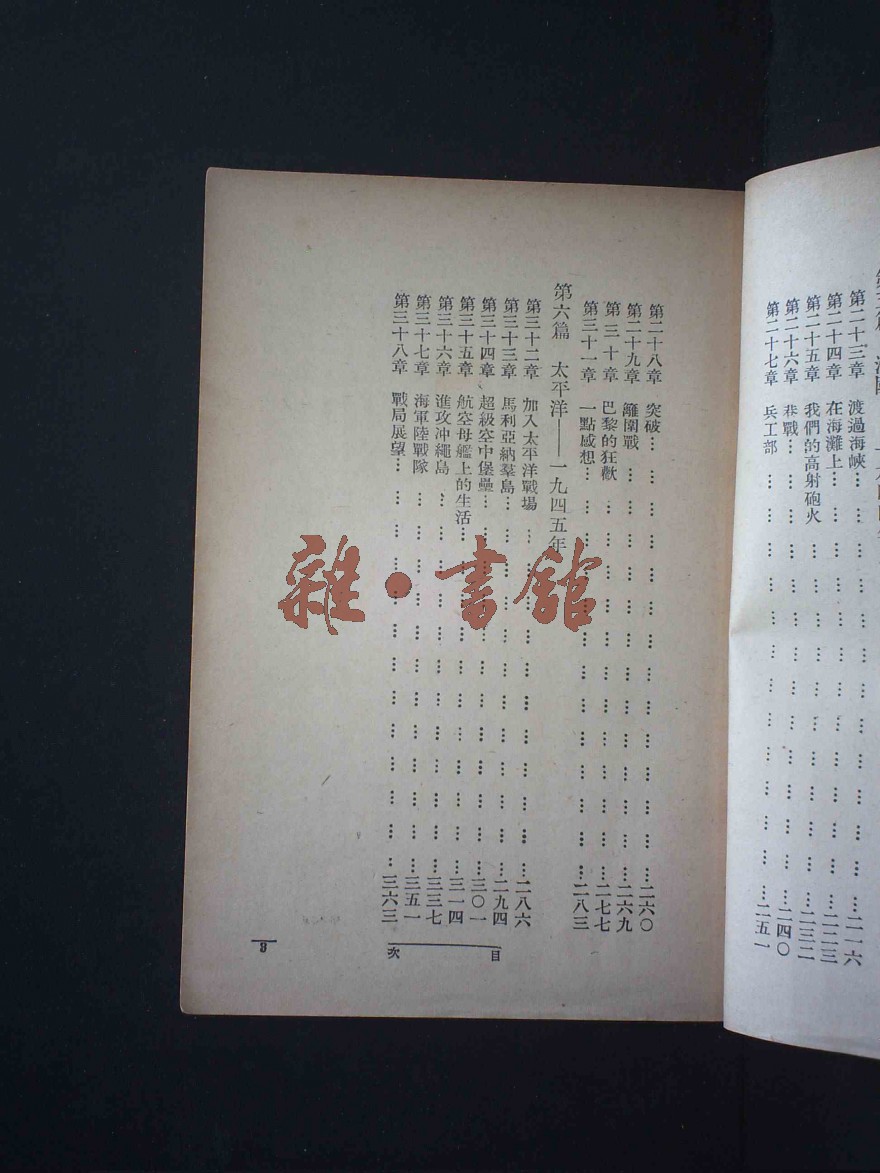 第二十三章　渡過海峽……二一六
第二十四章　在海灘上……二二三
第二十五章　我們的高射砲火……二三二
第二十六章　巷戰……二四〇
第二十七章　兵工部……二五一
第二十八章　突破……二六〇
第二十九章　籬圍戰……二六九
第三十章　巴黎的狂歡……二七七
第三十一章　一點感想……二八三
第六篇　太平洋——一九四五年
第三十二章　加入太平洋戰場……二八六
第三十三章　馬利亞納羣島……二九四
第三十四章　超級空中堡壘……三〇一
第三十五章　航空母艦上的生活……三一四
第三十六章　進攻冲繩島……三三七
第三十七章　海軍陸戰隊……三五一
第三十八章　戰局展望……三六三
目次
3
雜·書館